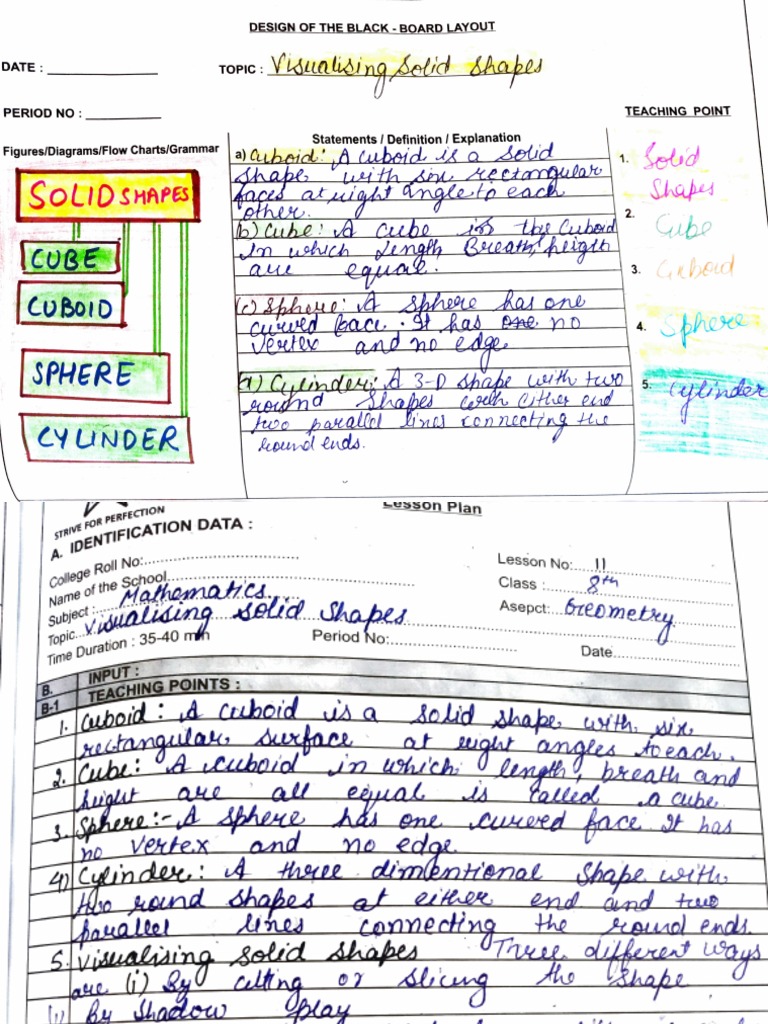 DESIGN OF THE BLACK - BOARD LAYOUT
DATE :
TOPIC : Visualising Solid Shapes
PERIOD NO :
TEACHING POINT
Figures/Diagrams/Flow Charts/Grammar
SOLID SHAPES
CUBE
CUBOID
SPHERE
CYLINDER
Statements / Definition / Explanation
a) Cuboid: A cuboid is a solid
shape with six rectangular
faces at right angle to each
other.
(b) Cube: A cube is the cuboid
in which length, Breath, height
are equal.
(c) Sphere: A sphere has one
curved face. It has one no
vertex and no edge
(d) Cylinder: A 3-D shape with two
round shapes with either end
two parallel lines connecting the
round ends.
1. Solid
Shapes
2. Cube
3. Cuboid
4. Sphere
5. Cylinder
STRIVE FOR PERFECTION
Lesson Plan
A. IDENTIFICATION DATA :
College Roll No:
Lesson No: 11
Name of the School
Class : 8th
Subject : Mathematics
Asepct: Geometry
Topic Visualising solid shapes
Time Duration : 35-40 min
Period No:
Date
B. INPUT :
B-1 TEACHING POINTS :
1. Cuboid : A cuboid is a solid shape with six
rectangular surface at right angles to each.
2. Cube: A cuboid in which length, breath and
height are all equal is called a cube
3. Sphere:- A sphere has one curved face It has
no vertex and no edge.
4) Cylinder: A three dimentional shape with
two round shapes at either end and two
parallel lines connecting the round ends.
5. Visualising solid shapes Three different ways
are (i) By cutting or slicing the shape
By shadow play